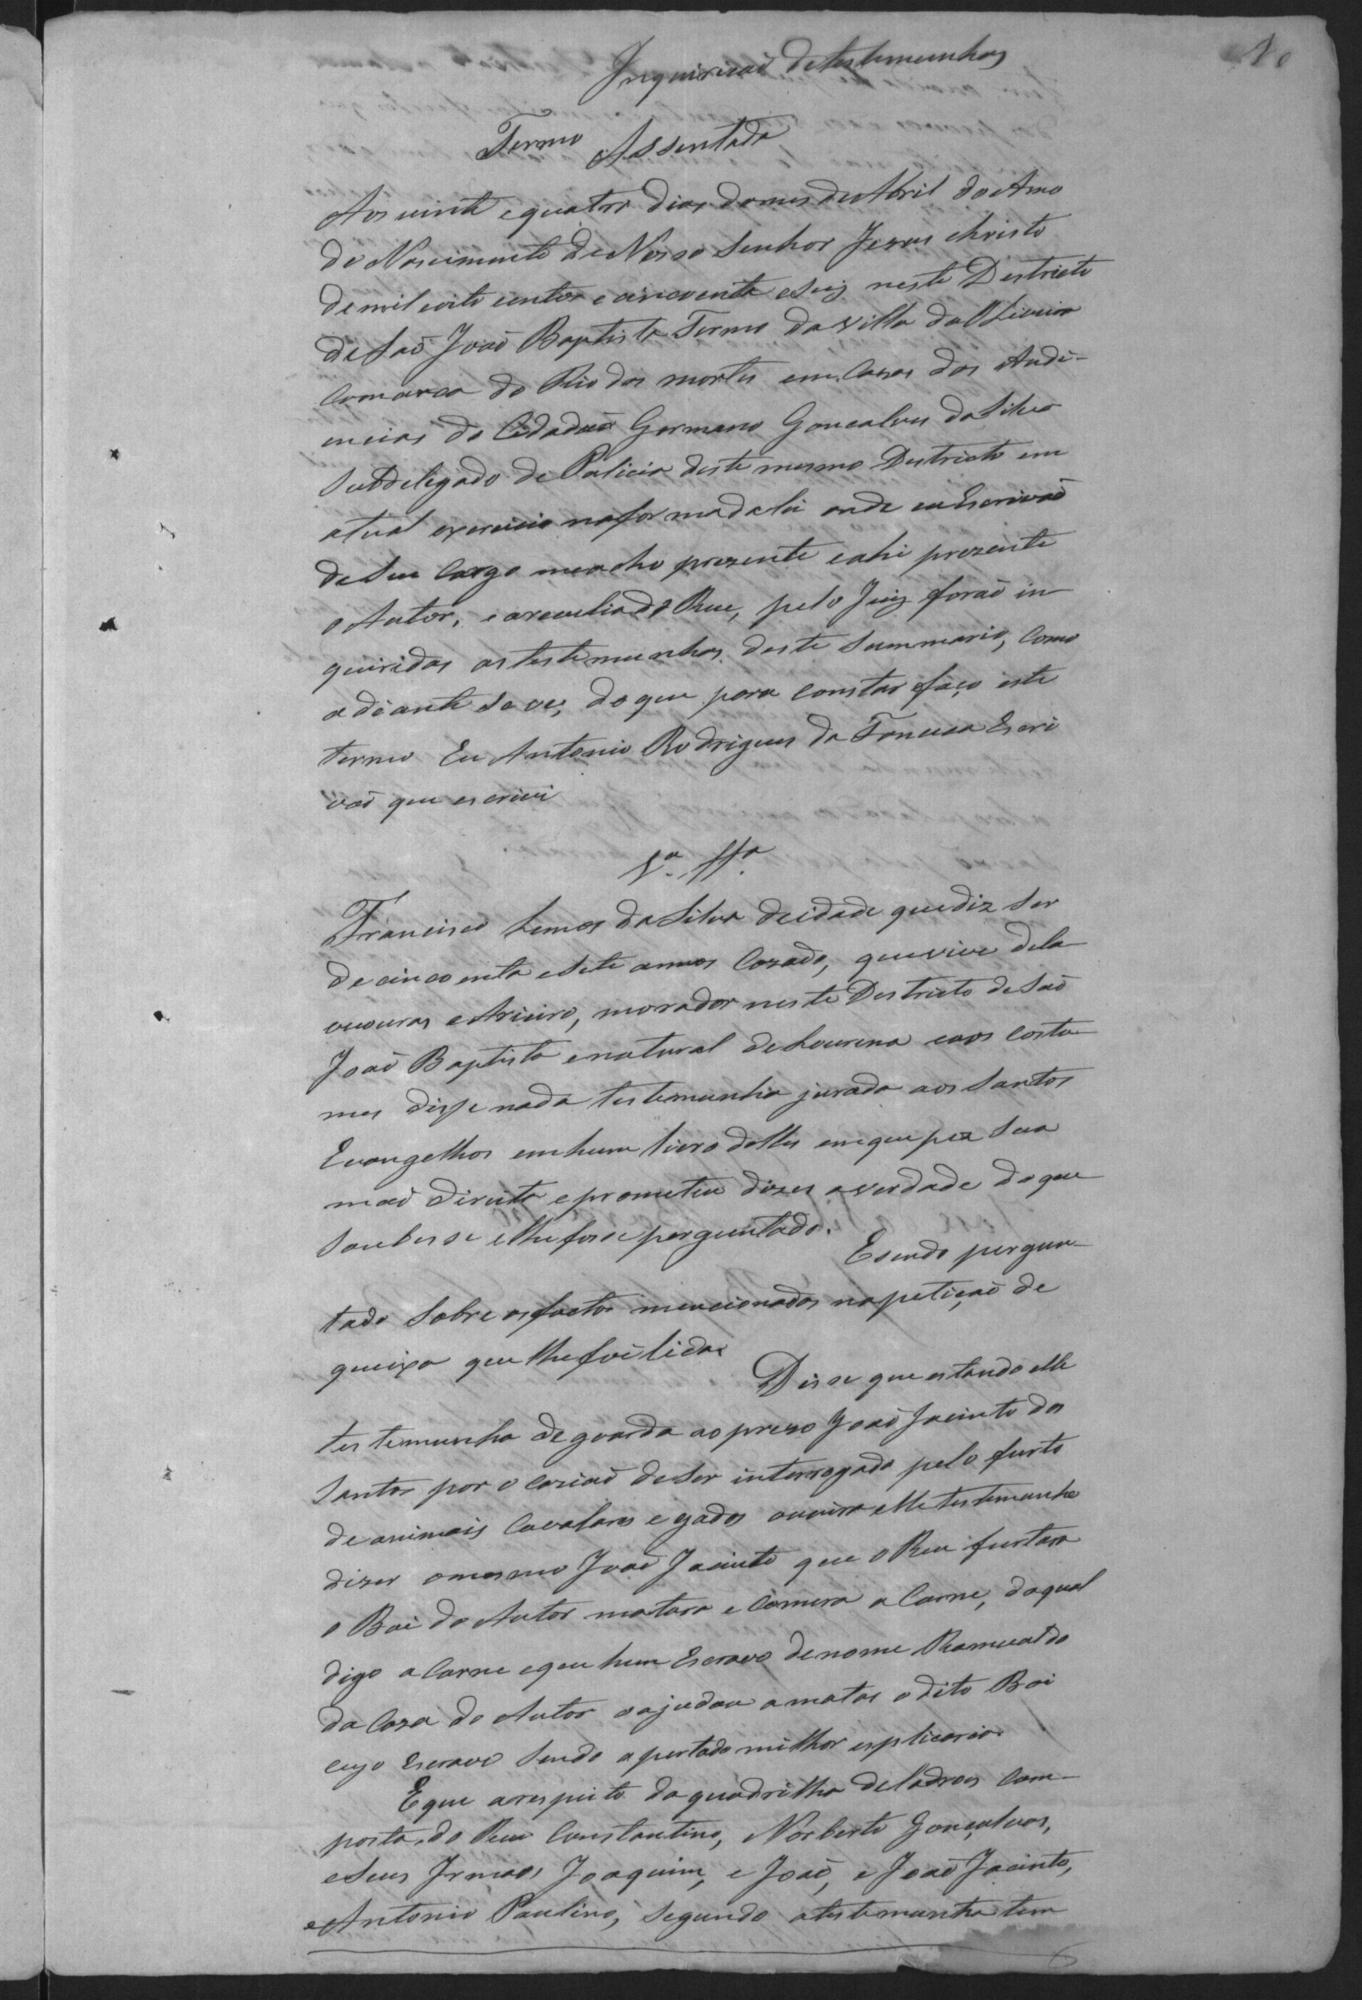 Inquiricaõ de testemunhas
Termo Assentada
Aos vinte e quatro dias do mes de Abril do Anno
do Nascimento de Nosso Senhor Jezus Christo
de mil oito centos e cincoenta e Seis neste Destricto
de Saõ Joaõ Baptista Termo da Villa da Oliveira
Comarca do Rio das mortes em Cazas das Audi-
encias do Cidadaõ Germano Goncalves da Silva
Subdelegado de Policia deste mesmo Destricto em
atual exercicio na forma da lei onde eu Escrivaõ
de Seu Cargo me acho prezente e ahi prezente
o Autor, e a revelia do Reu, pelo Juiz foraõ in
queridas as testemunhas deste Summario, Como
adiante se ve, do que para constar faço este
termo Eu Antonio Rodrigues da Fonceca Escri
vaõ que escrivi
1ª. ttª.
Francisco Lemos da Silva de idade que diz ser
de cincoenta e Sete annos Cazado, que vive de la
vouras e Arieiro, morador neste Destricto de Saõ
Joaõ Baptista e natural de Lourena e aos Costu
mes disse nada testemunha jurada aos Santos
Evangelhos em hum livro delles em que pez Sua
maõ direita e prometeu dizer a verdade do que
Soubesse e lhe fosse perguntado.
E sendo pergun-
tado Sobre os factos mencionados na petiçaõ de
queixa que lhe foi lida.
Disse que estando elle
testemunha de guarda ao prezo Joaõ Jacinto dos
Santos por o caziaõ de Ser interrogado pelo furto
de animais Cavalares e gados ouvira elle testemunha
dizer o mesmo Joaõ Jacinto que o Reu furtara
o Boi do Autor matara e Comera a Carne, da qual
digo a Carne e que hum Escravo de nome Ramualdo
da Caza do Autor o ajudou a matar o dito Boi
cujo Escravo Sendo apertado milhor esplicaria.
E que a respeito da quadrilha de ladroes Com-
posta do Reu Constantino, Norberto Gonçalves,
e Seus Irmaos Joaquim, e Joaõ, e Joaõ Jacinto,
e Antonio Paulino, Segundo a testemunha tem